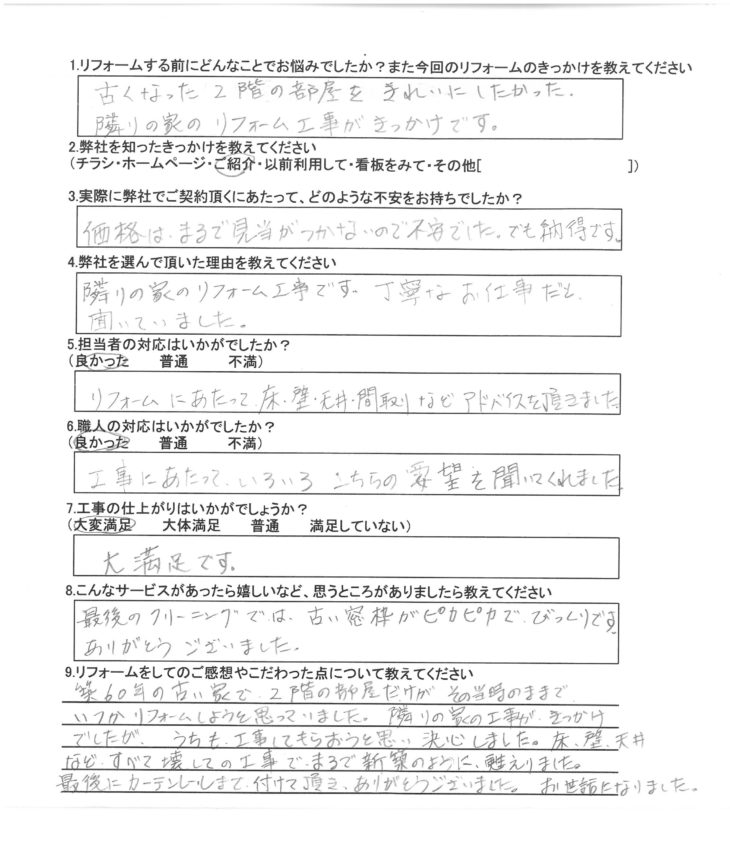 1.リフォームする前にどんなことでお悩みでしたか？また今回のリフォームのきっかけを教えてください
古くなった２階の部屋をきれいにしたかった.
隣りの家のリフォーム工事がきっかけです。
2.弊社を知ったきっかけを教えてください
(チラシ・ホームページ・ご紹介・以前利用して・看板をみて・その他[ ])
3.実際に弊社でご契約頂くにあたって、どのような不安をお持ちでしたか？
価格は、まるで見当がつかないので不安でした。でも納得です。
4.弊社を選んで頂いた理由を教えてください
隣りの家のリフォーム工事です。丁寧なお仕事だと、
聞いていました。
5.担当者の対応はいかがでしたか？
(良かった 普通 不満)
リフォームにあたって、床・壁・天井・間取りなどアドバイスを頂きました
6.職人の対応はいかがでしたか？
(良かった 普通 不満)
工事にあたって、いろいろこちらの要望を聞いてくれました
7.工事の仕上がりはいかがでしょうか？
(大変満足 大体満足 普通 満足していない)
大満足です。
8.こんなサービスがあったら嬉しいなど、思うところがありましたら教えてください
最後のクリーニングでは、古い窓枠がピカピカで、びっくりです
ありがとうございました。
9.リフォームをしてのご感想やこだわった点について教えてください
築60年の古い家で、２階の部屋だけが その当時のままで
いつかリフォームしようと思っていました。隣りの家の工事が、きっかけ
でしたが、うちも、工事してもらおうと思い 決心しました。床、壁、天井
など、すべて壊しての工事で、まるで新築のように、甦えりました。
最後にカーテンレールまで、付けて頂き、ありがとうございました。お世話になりました。